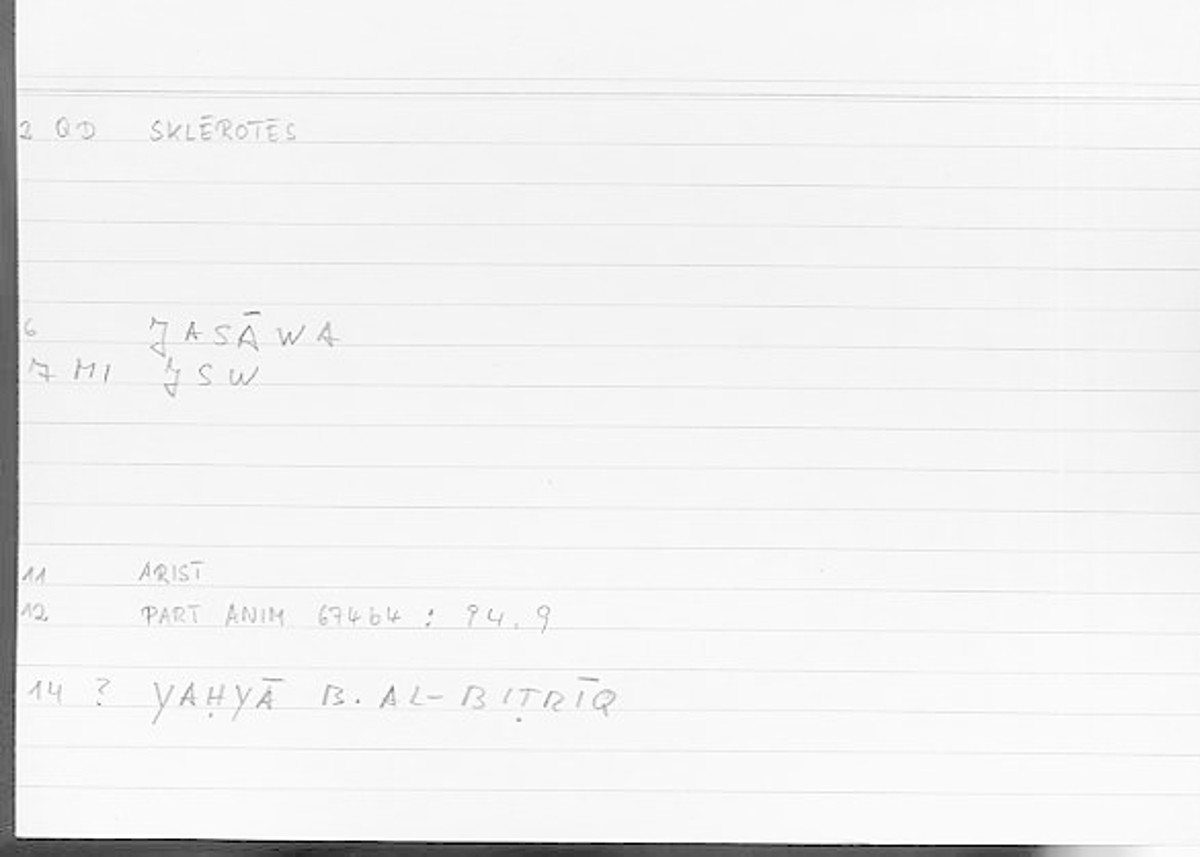 2 QD SKLĒROTĒS
6 JASĀWA
7 MI JSW
11 ARIST
12 PART ANIM 674b4 : 94.9
14 ? YAḤYĀ B. AL-BIṬRĪQ